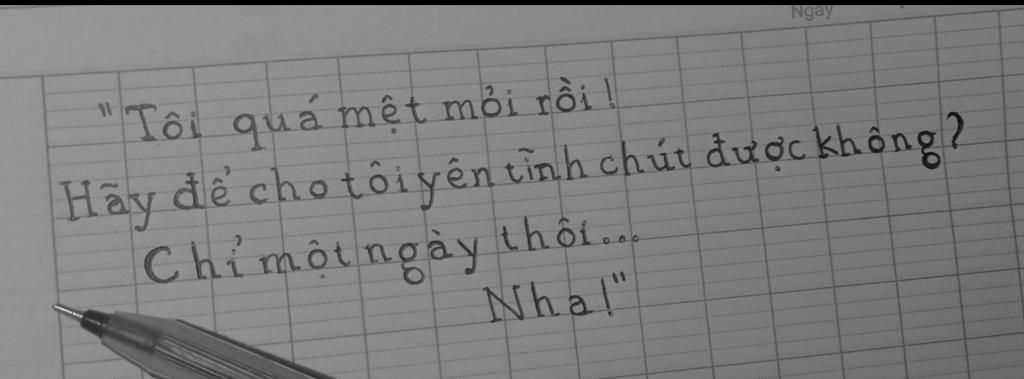 Ngày
"Tôi quá mệt mỏi rồi!
Hãy để cho tôi yên tĩnh chút được không?
Chỉ một ngày thôi...
Nha!"